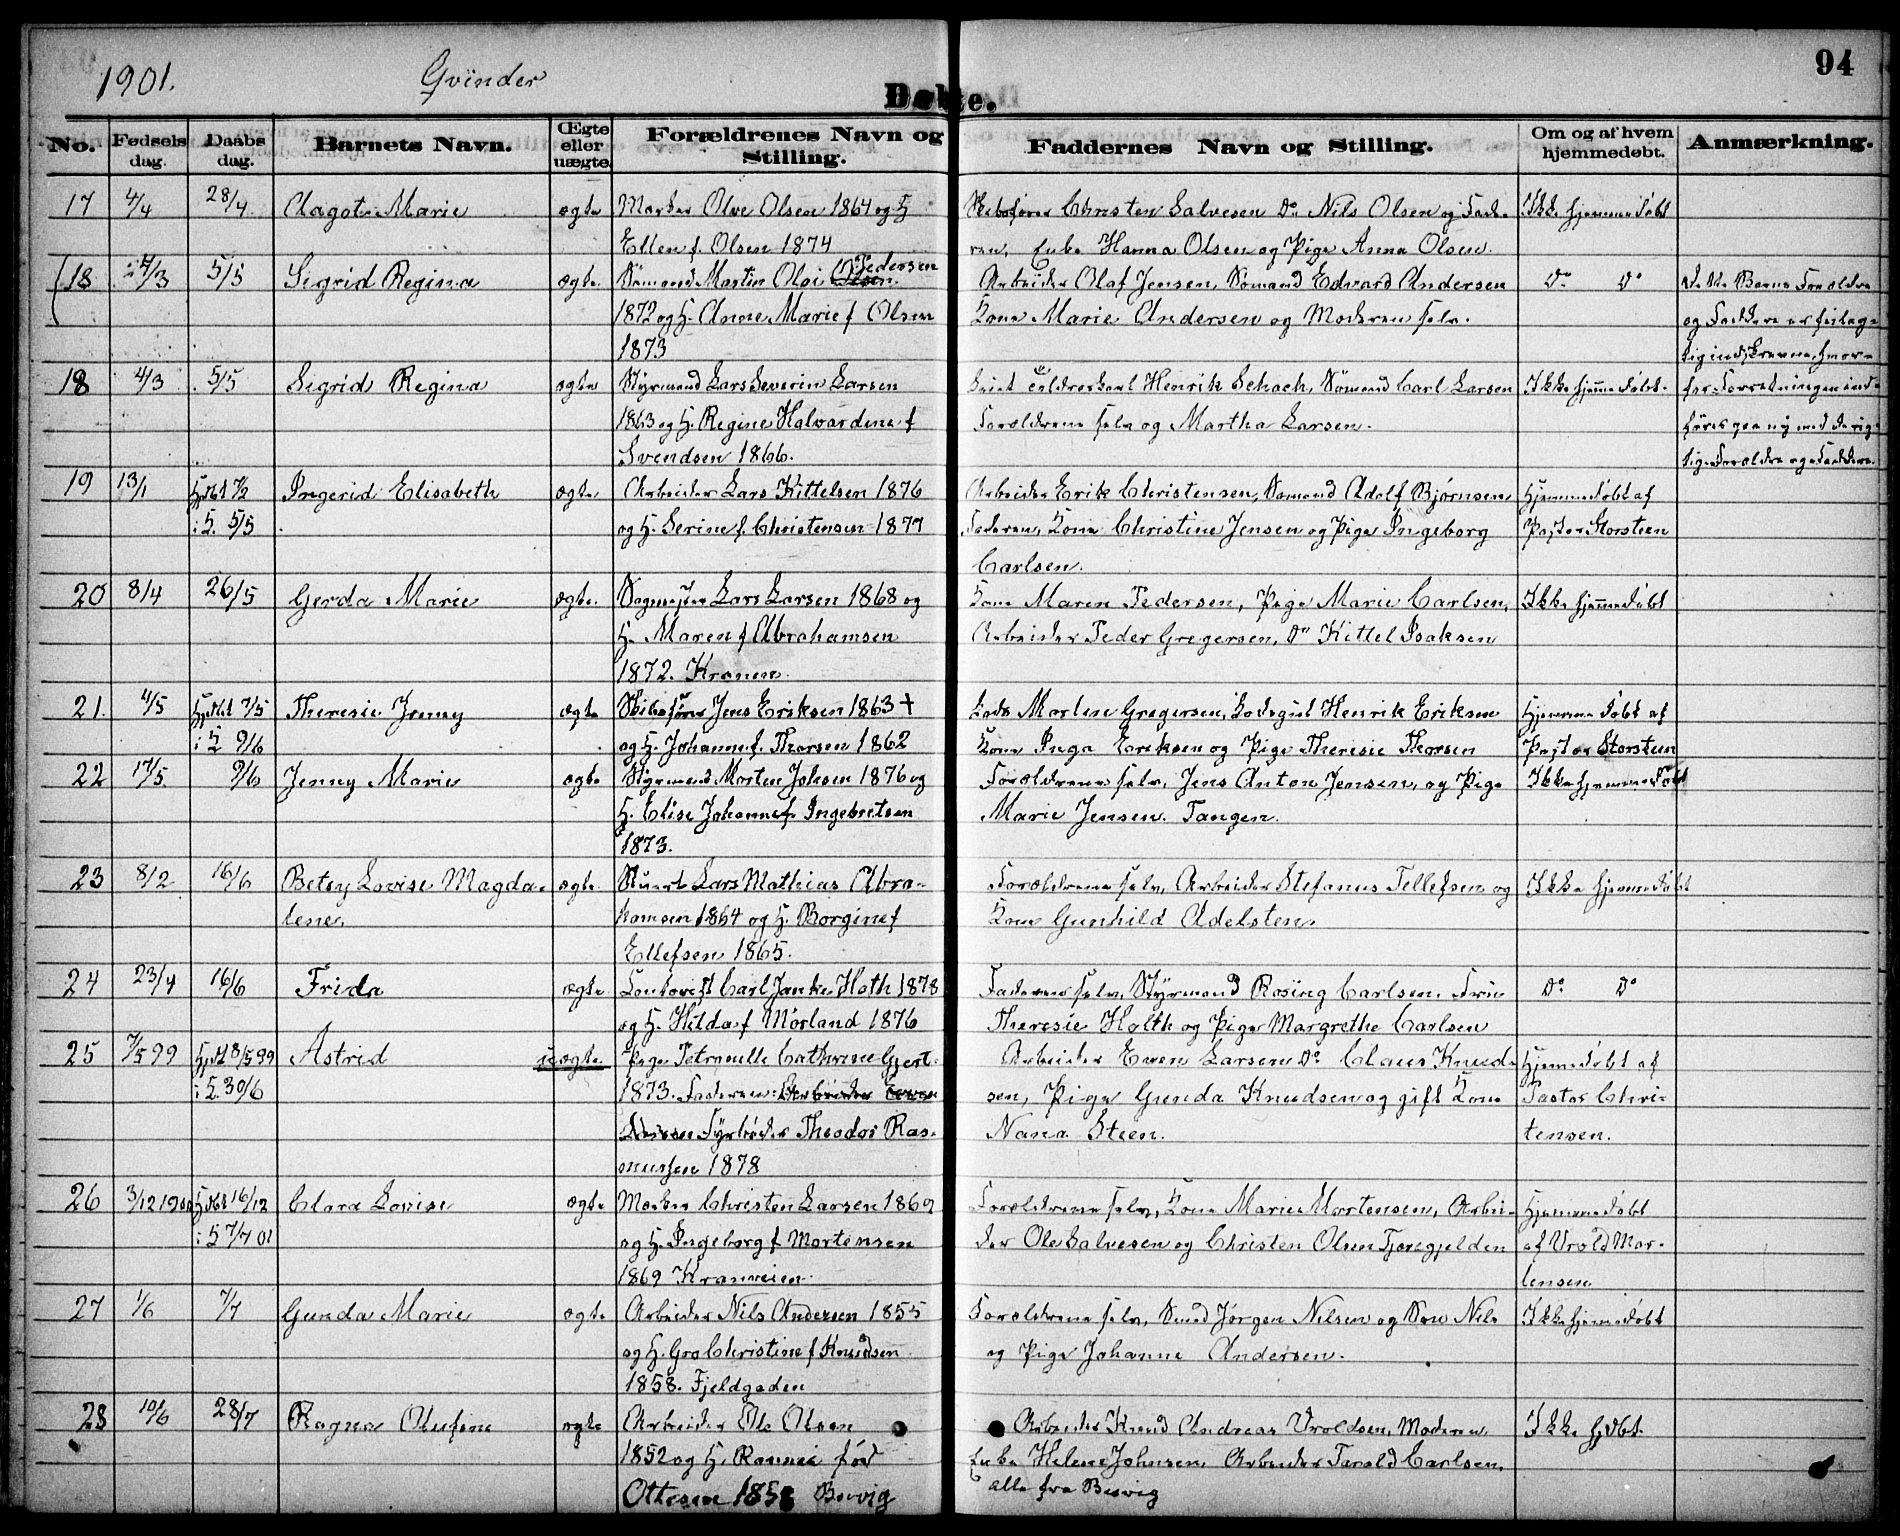 1901.
Qvinder
Døbte.
94
No.
Fødsels dag.
Daabs dag.
Barnets Navn.
Ægte eller uægte.
Forældrenes Navn og Stilling.
Faddernes Navn og Stilling.
Om og af hvem hjemmedøbt.
Anmærkning.
17 4/4 28/4 Aagot Marie ægte Olve Olsen 1864 og H. Christen Salvesen Do Nils Olsen og Fade- Ikke hjemmedøbt
Ellen f. Olsen 1874 ren, Enke Hanna Olsen og Pige Anna Olsen.
18 4/3 5/5 Sigrid Regina ægte Sømand Martin Olai Olsen Pedersen Arbeider Olaf Jensen, Sømand Edvard Andersen Do Do Barns Forældre
1872 og H. Anne Marie f Olsen Kone Marie Andersen og Moderen selv. og Faddere er feilag-
1873 tig indskrevne, hvor-
18 4/3 5/5 Sigrid Regina ægte Styrmand Lars Severin Larsen Henrik Schach, Sømand Carl Larsen Ikke hjemmedøbt. for Forretningen ind-
1863 og H. Regine Halvardine f Forældrene selv og Martha Larsen. føres paa ny med de rig-
Svendsen 1866. tige Forældre og Faddere.
19 13/1 Hjdbt 7/2 Ingerid Elisabeth ægte Arbeider Lars Kittelsen 1876 Arbeider Erik Christensen, Sømand Adolf Bjørnsen, Hjemmedøbt af
i K. 5/5 og H. Serine f. Christensen 1877 Faderen, Kone Christine Jensen og Pige Ingeborg Pastor Storsteen
Carlsen.
20 8/4 26/5 Gerda Marie ægte. Lars Larsen 1868 og Kone Maren Pedersen, Pige Marie Carlsen, Ikke hjemmedøbt
H. Maren f Abrahamsen Arbeider Peder Gregersen, Do Kittel Isaksen
1872. Kranen.
21. 4/5 Hjdbt 7/5 Theresie Jenny ægte Skibsfører Jens Eriksen 1863 + Morten Gregersen, Henrik Eriksen Hjemmedøbt af
i K 9/6 og H. Johanne f. Thorsen 1862 Kone Inga Eriksen og Pige Theresie Thorsen Pastor Storsteen
22 17/5. 9/6 Jenny Marie ægte Styrmand Morten Johsen 1876 og Forældrene selv, Jens Anton Jensen, og Pige Ikke hjemmedøbt
H. Elise Johanne f. Ingebretsen Marie Jensen. Tangen.
1873.
23 8/2 16/6 Betsy Lovise Magda- ægte. Stuert Lars Mathias Abra- Forældrene selv, Arbeider Stefanus Tellefsen og Ikke hjemmedøbt
lene. hamsen 1864 og H. Borgine f Kone Gunhild Adelsten.
Ellefsen 1865.
24 23/4 16/6 Frida ægte Kontorist Carl Janke Hoth 1878 Faderen selv, Styrmand Rosing Carlsen. Do Do
og H. Hilda f Mørland 1876 Theresie Holth og Pige Margrethe Carlsen
25 7/5 99 Hjdbt 8/5 99 Astrid uægte. Pige Petronelle Cathrine Gjert- Arbeider Even Larsen Do Claus Knud- Hjemmedøbt af
i K. 30/6 1873. Faderen: Arbeider Even sen, Pige Gunda Knudsen og gift Kone Pastor Chri-
Fyrbøder Theodor Ras- Nana Steen. stensen.
mussen 1878
26 3/12 1900 Hjdbt 16/12 Clara Lovise ægte Christen Larsen 1869 Forældrene selv, Kone Marie Mortensen, Arbei- Hjemmedøbt
i K 7/7 01 og H. Ingeborg f Mortensen der Ole Salvesen og Christen Olsen Tjæregjelden af Urold Mor-
1869 Kranveien. tensen
27 1/6 7/7 Gunda Marie ægte Arbeider Nils Andersen 1855 Forældrene selv, Smed Jørgen Nilsen og Søn Nils Ikke hjemmedøbt
og H. Gro Christine f Knudsen og Pige Johanne Andersen.
1858. Fjeldgaden
28 10/6 28/7 Ragna Olufine ægte Arbeider Ole Olsen Arbeider Knud Andreas Uroldsen, Moderen, Ikke hjdbt.
1852 og H. Rannei født Enke Helene Johnsen, Arbeider Tarald Carlsen,
Ottesen 1858 Bosvig alle fra Bosvig